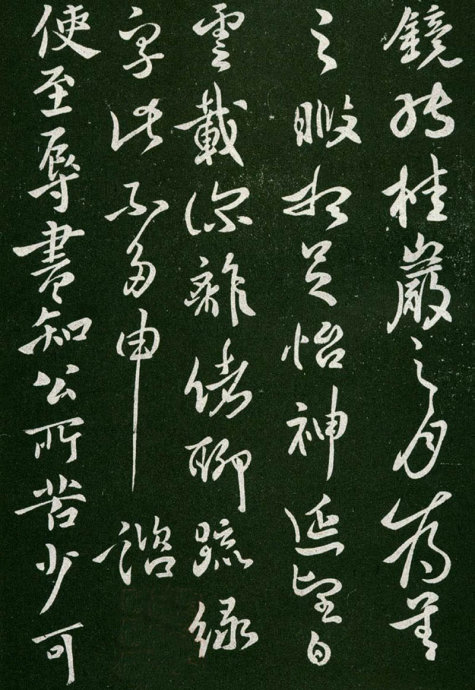 鏡桂巖之月為
之暇想足怡神延望白
雲載深離緒聊疏綠
字此不多申諮
使至辱書知公所苦少可